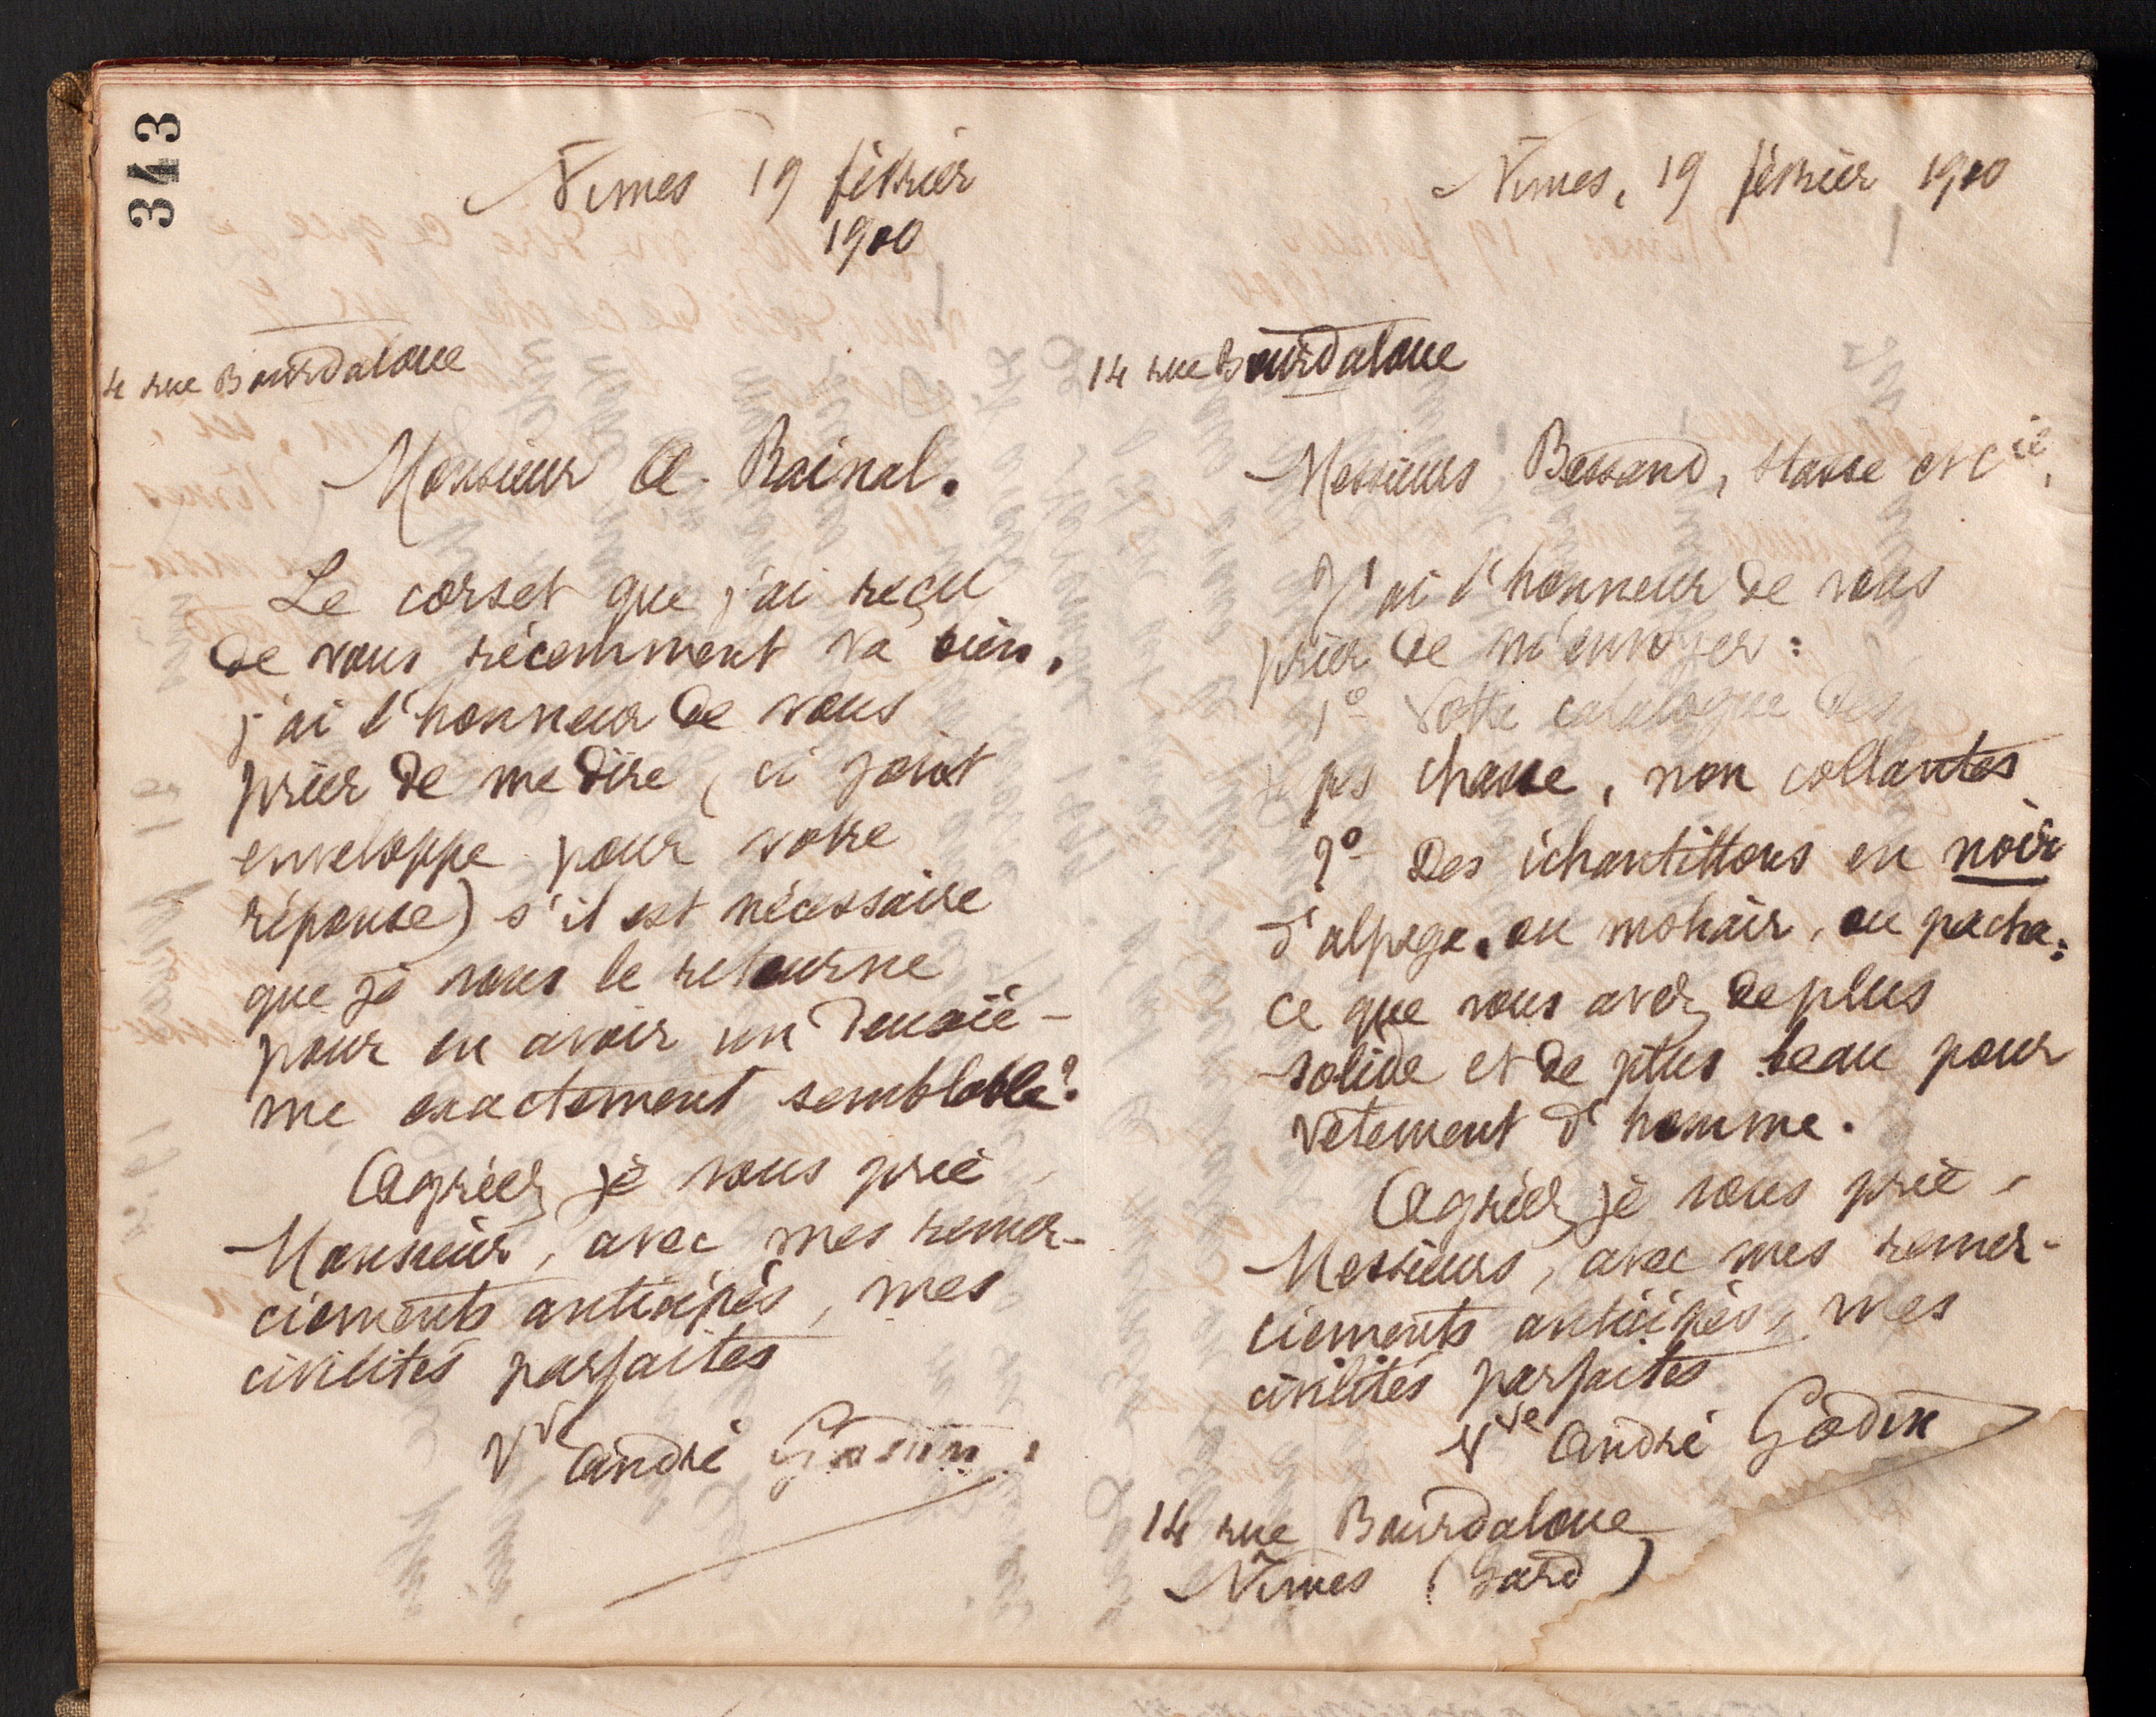 343
Nimes 19 février
1900
4 rue Bourdaloue
Monsieur A. Rainal.
Le corset que j'ai reçu
de vous récemment va bien.
j'ai l'honneur de vous
prier de me dire, (ci joint
enveloppe pour votre
réponse) s'il est nécessaire
que je vous le retourne
pour en avoir un deuxiè-
me exactement semblable?
Agréez je vous prie
Monsieur, avec mes remer-
ciements anticipés, mes
civilités parfaites
Vve André Godin
Nimes, 19 février 1900
14 rue Bourdaloue
Messieurs Bessand, Stasse et Cie,
J'ai l'honneur de vous
prier de m'envoyer:
1° Votre catalogue des
ps chasse, non collantes
2° Des échantillons en noir
d'alpaga, ou mohair, ou pacha:
ce que vous avez de plus
solide et de plus beau pour
vêtement d'homme.
Agréez je vous prie,
Messieurs, avec mes remer-
ciements anticipés, mes
civilités parfaites
Vve André Godin
14 rue Bourdaloue
Nimes (Gard)